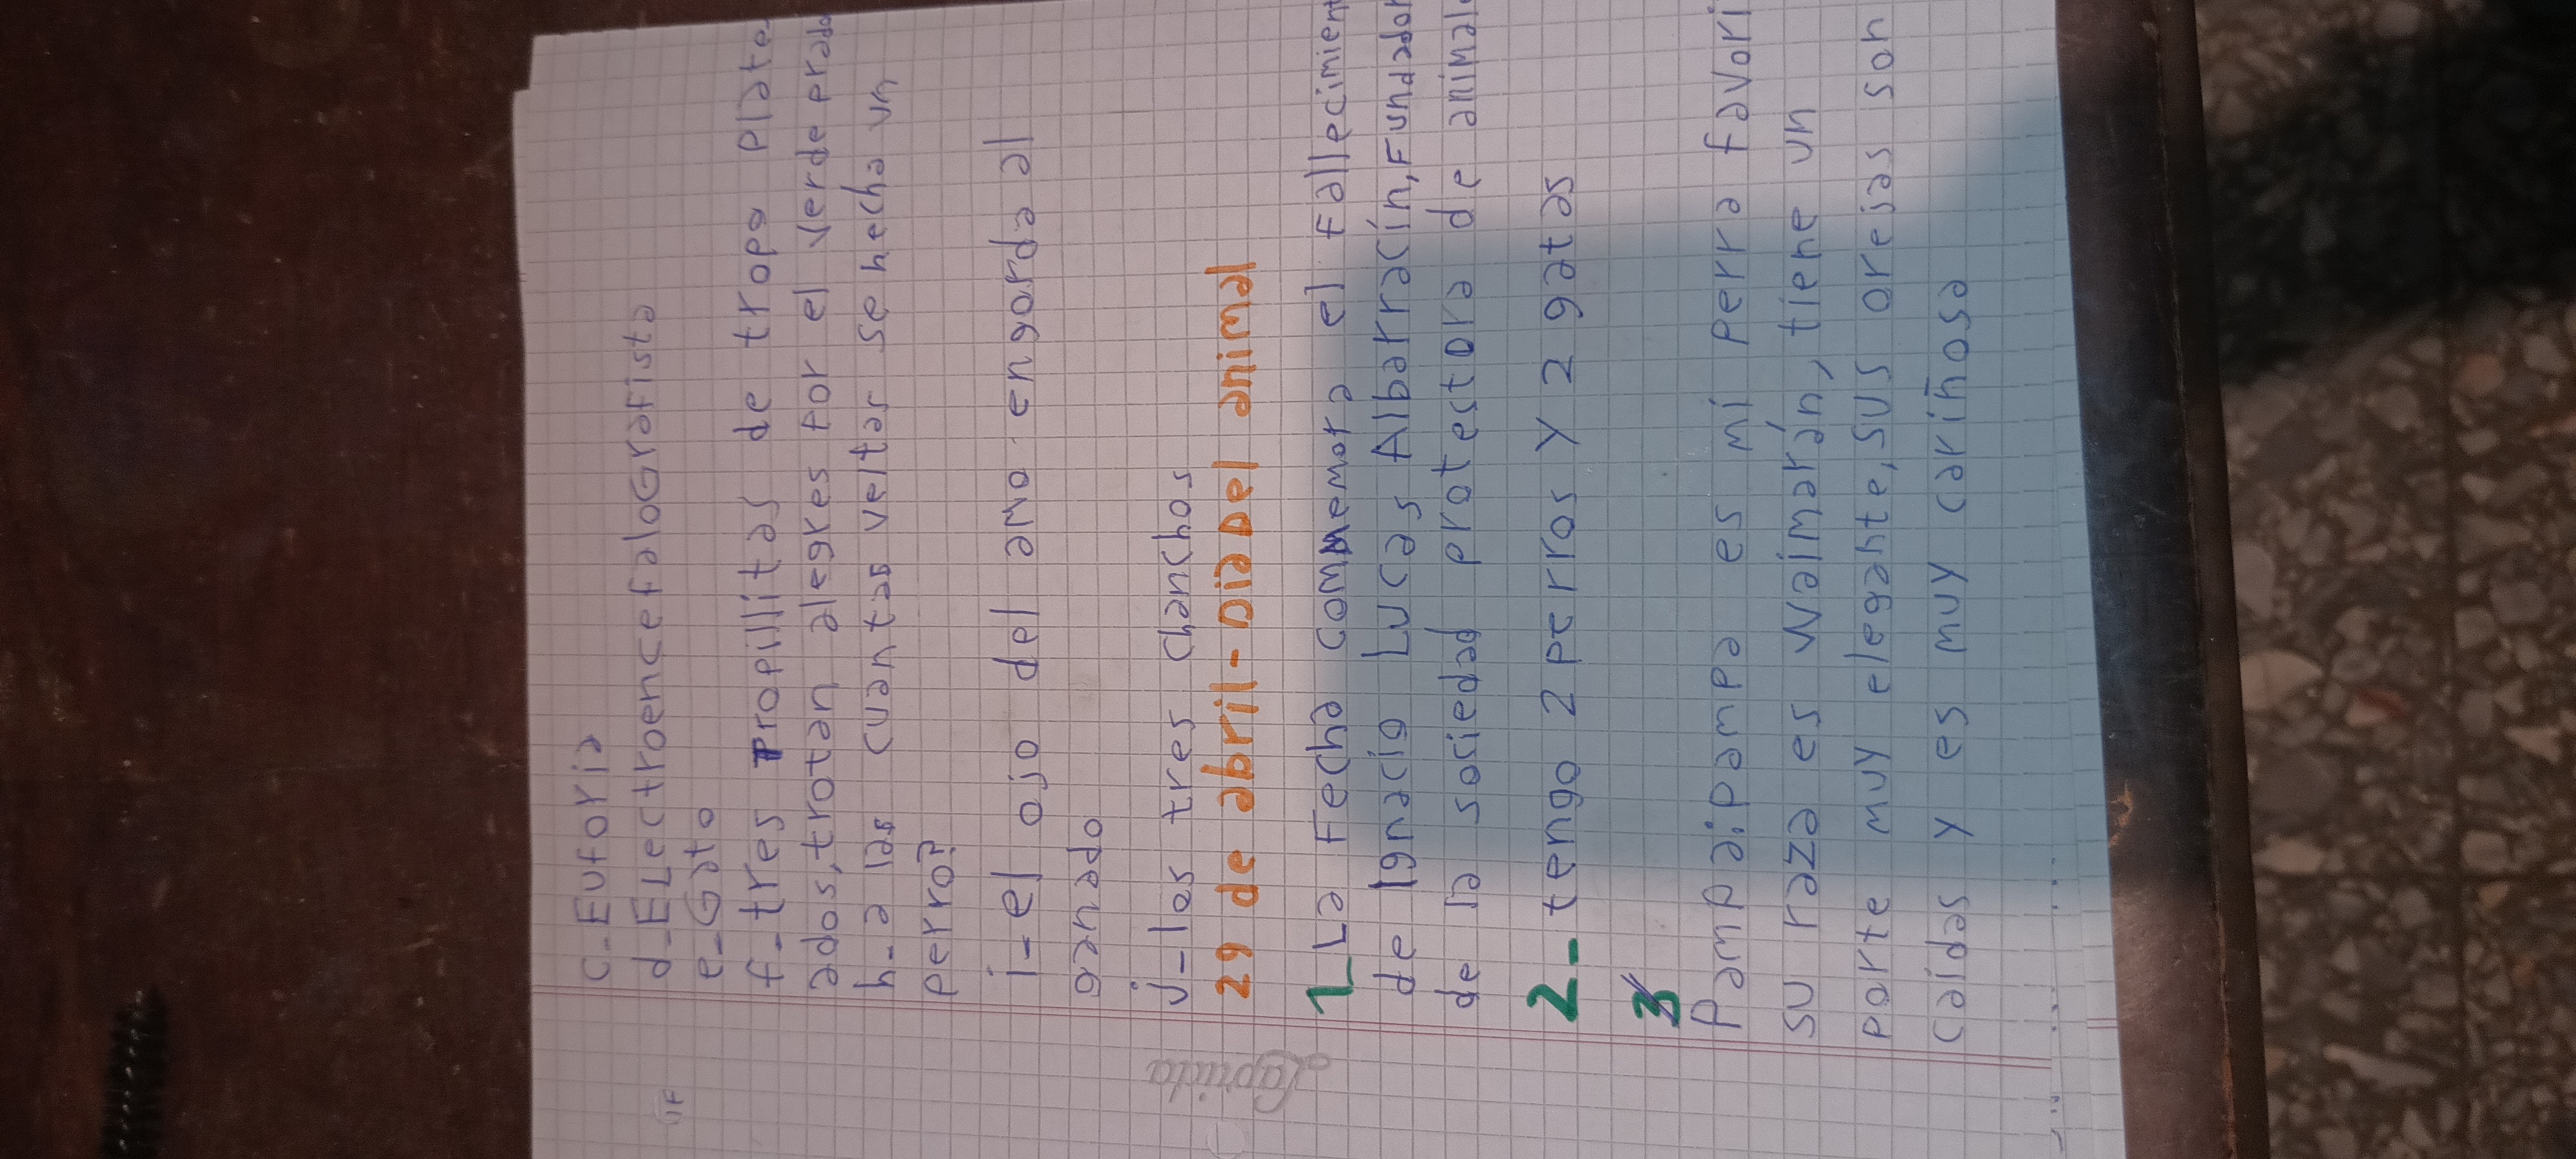 c-Euforia
d-ELectroencefaloGrafista
e-Gato
f-tres tropillitas de tropa plate
ados, trotan alegres por el verde prado
h-a las cuantas veltas se hecha un
perro?
i-el ojo del amo engorda al
ganado
j-los tres chanchos
29 de abril-Dia Del animal
1-La Fecha conmemora el fallecimient
de Ignacio Lucas Albarracín, Fundador
de la sosiedad protestora de animal
2-tengo 2 perros y 2 gatas
3
Pampa: pampa es mi perra favori
su raza es Waimarán, tiene un
porte muy elegante, sus orejas son
caidas y es muy cariñosa
Laprida